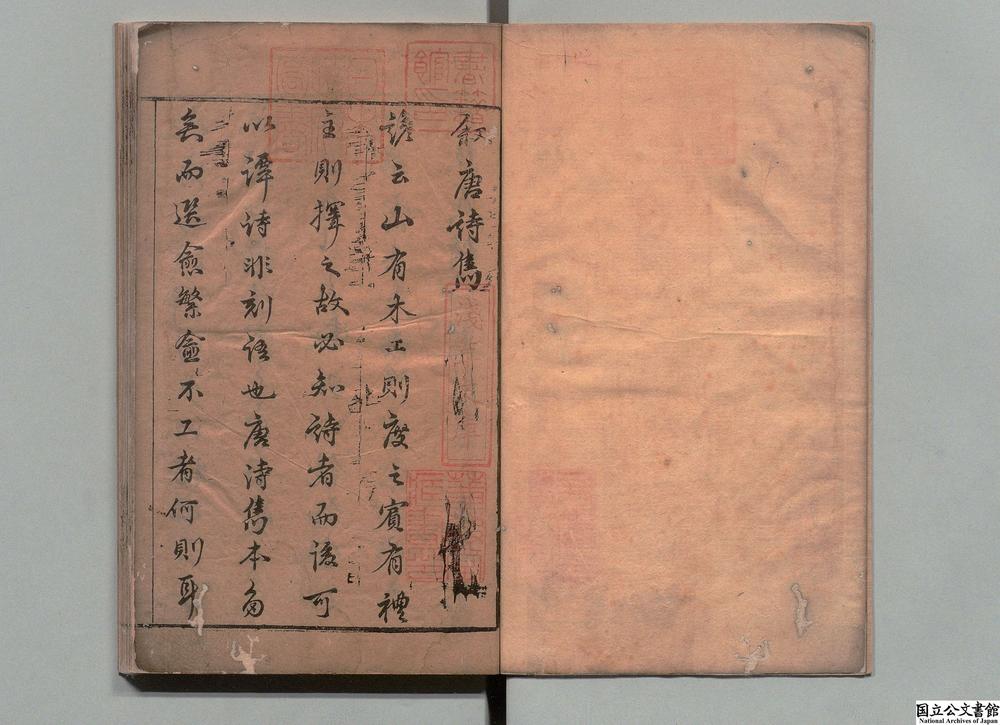 叙唐詩雋
諺云山有木工則度之賓有禮
主則擇之故必知詩者而後可
以譚詩非刻語也唐詩雋本多
矣而選愈繁愈不工者何則耳
国立公文書館
National Archives of Japan